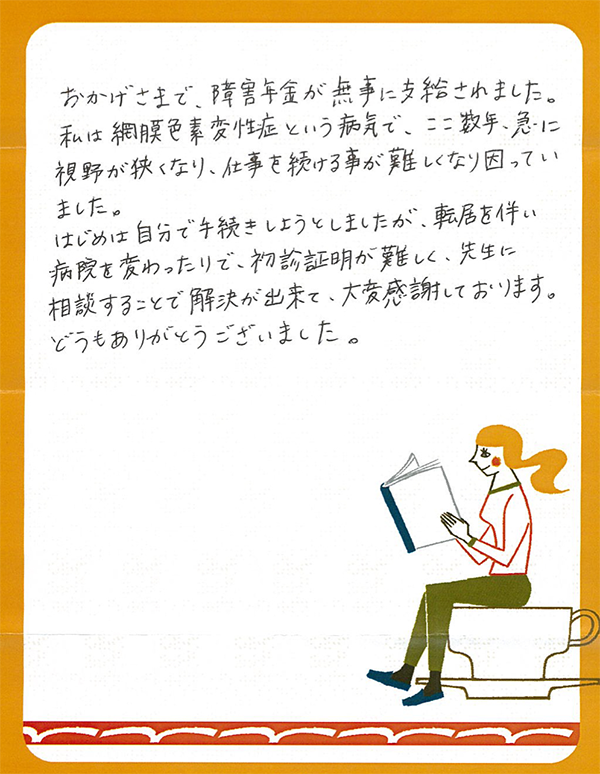 おかげさまで、障害年金が無事に支給されました。
私は網膜色素変性症という病気で、ここ数年、急に
視野が狭くなり、仕事を続ける事が難しくなり困ってい
ました。
はじめは自分で手続きしようとしましたが、転居を伴い
病院を変わったりで、初診証明が難しく、先生に
相談することで解決が出来て、大変感謝しております。
どうもありがとうございました。